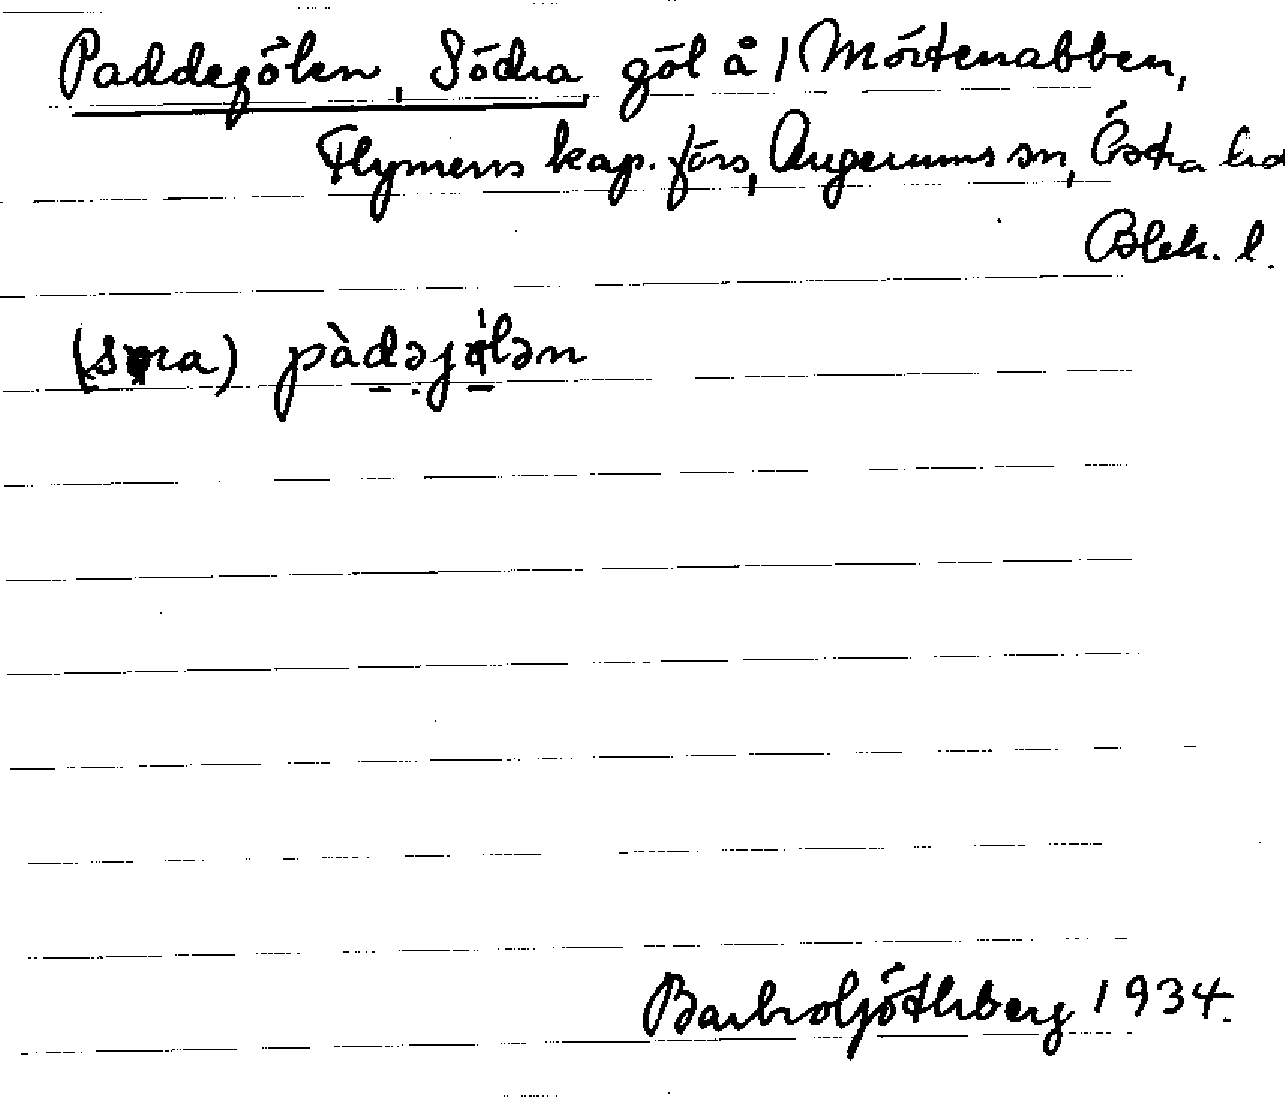 Paddegölen, Södra göl å 1 Mörtenabben,
Flymens kap. förs, Augerums sn, Östra hd
Blek. l.
pàdəjölən
Barbro Göthberg 1934.